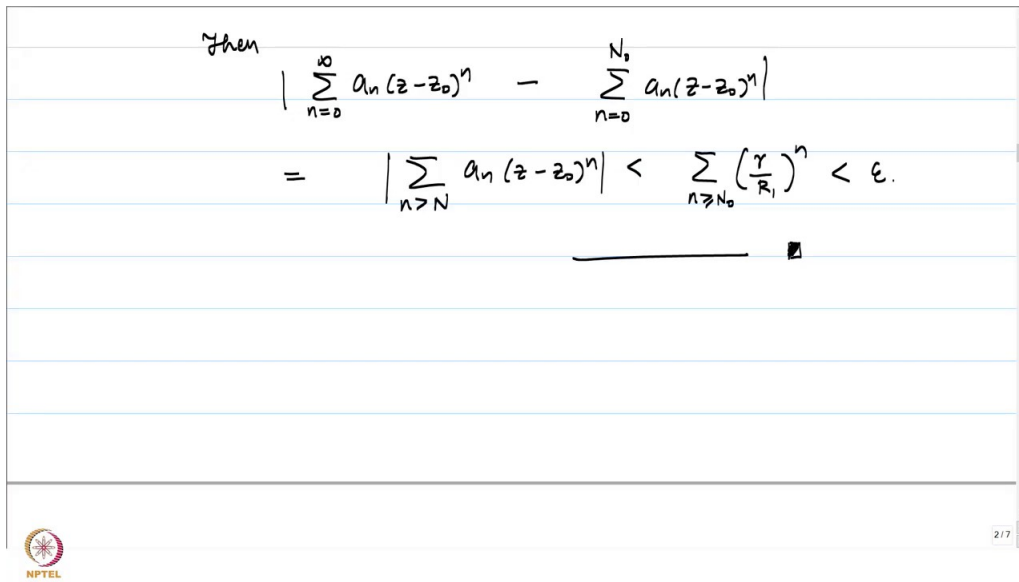 Then
| ∞∑n=0 aₙ(z-z₀)ⁿ - N₀∑n=0 aₙ(z-z₀)ⁿ|
= |∑n>N aₙ(z-z₀)ⁿ| < ∑n≥N₀ (r/R₁)ⁿ < ε.
2 / 7
NPTEL